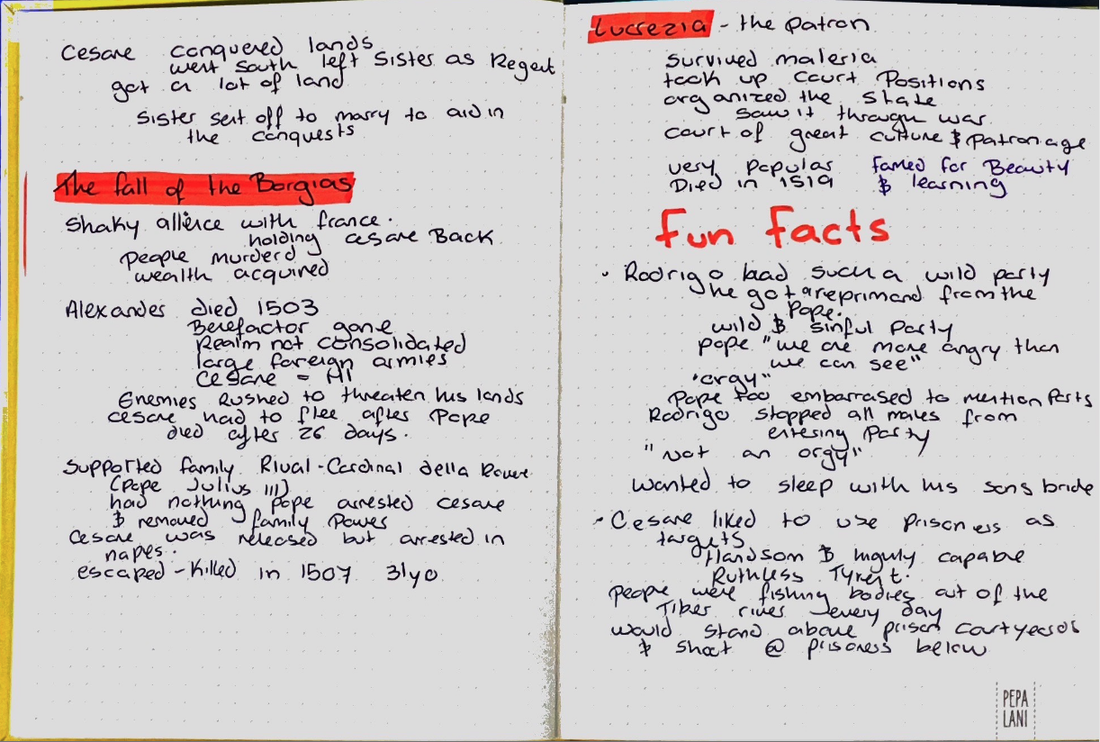 Cesare conquered lands
west south left sister as Regent
got a lot of land
sister sent off to marry to aid in
the conquests
The fall of the Borgias
shaky allience with france.
holding cesare Back
people murderd
wealth acquired
Alexander died 1503
Benefactor gone
Realm not consolidated
large foreign armies
Cesare = Ill
Enemies Rushed to threaten his lands
cesare had to flee after Pope
died after 26 days.
supported family Rival - Cardinal della Rovere
(Pope Julius III)
had nothing pope arrested cesare
& removed family Power
Cesare was released but arrested in
naples.
escaped - Killed in 1507 31yo
Lucrezia - the patron
survived maleria
took up court Positions
organized the state
saw it through war.
court of great culture & patronage
very popular famed for Beauty
Died in 1519 & learning
Fun Facts
• Rodrigo had such a wild party
he got a reprimand from the
Pope.
wild & sinful Party
pope "we are more angry than
we can see"
"orgy"
Pope too embarrased to mention Parts
Rodrigo stopped all males from
entering Party
"not an orgy"
wanted to sleep with his sons bride
• Cesare liked to use Prisoners as
targets
Handsom & highly capable
Ruthless Tyrent.
people were fishing bodies out of the
Tiber river every day
would stand above prison courtyards
& shoot @ prisoners below
PEPA
LANI